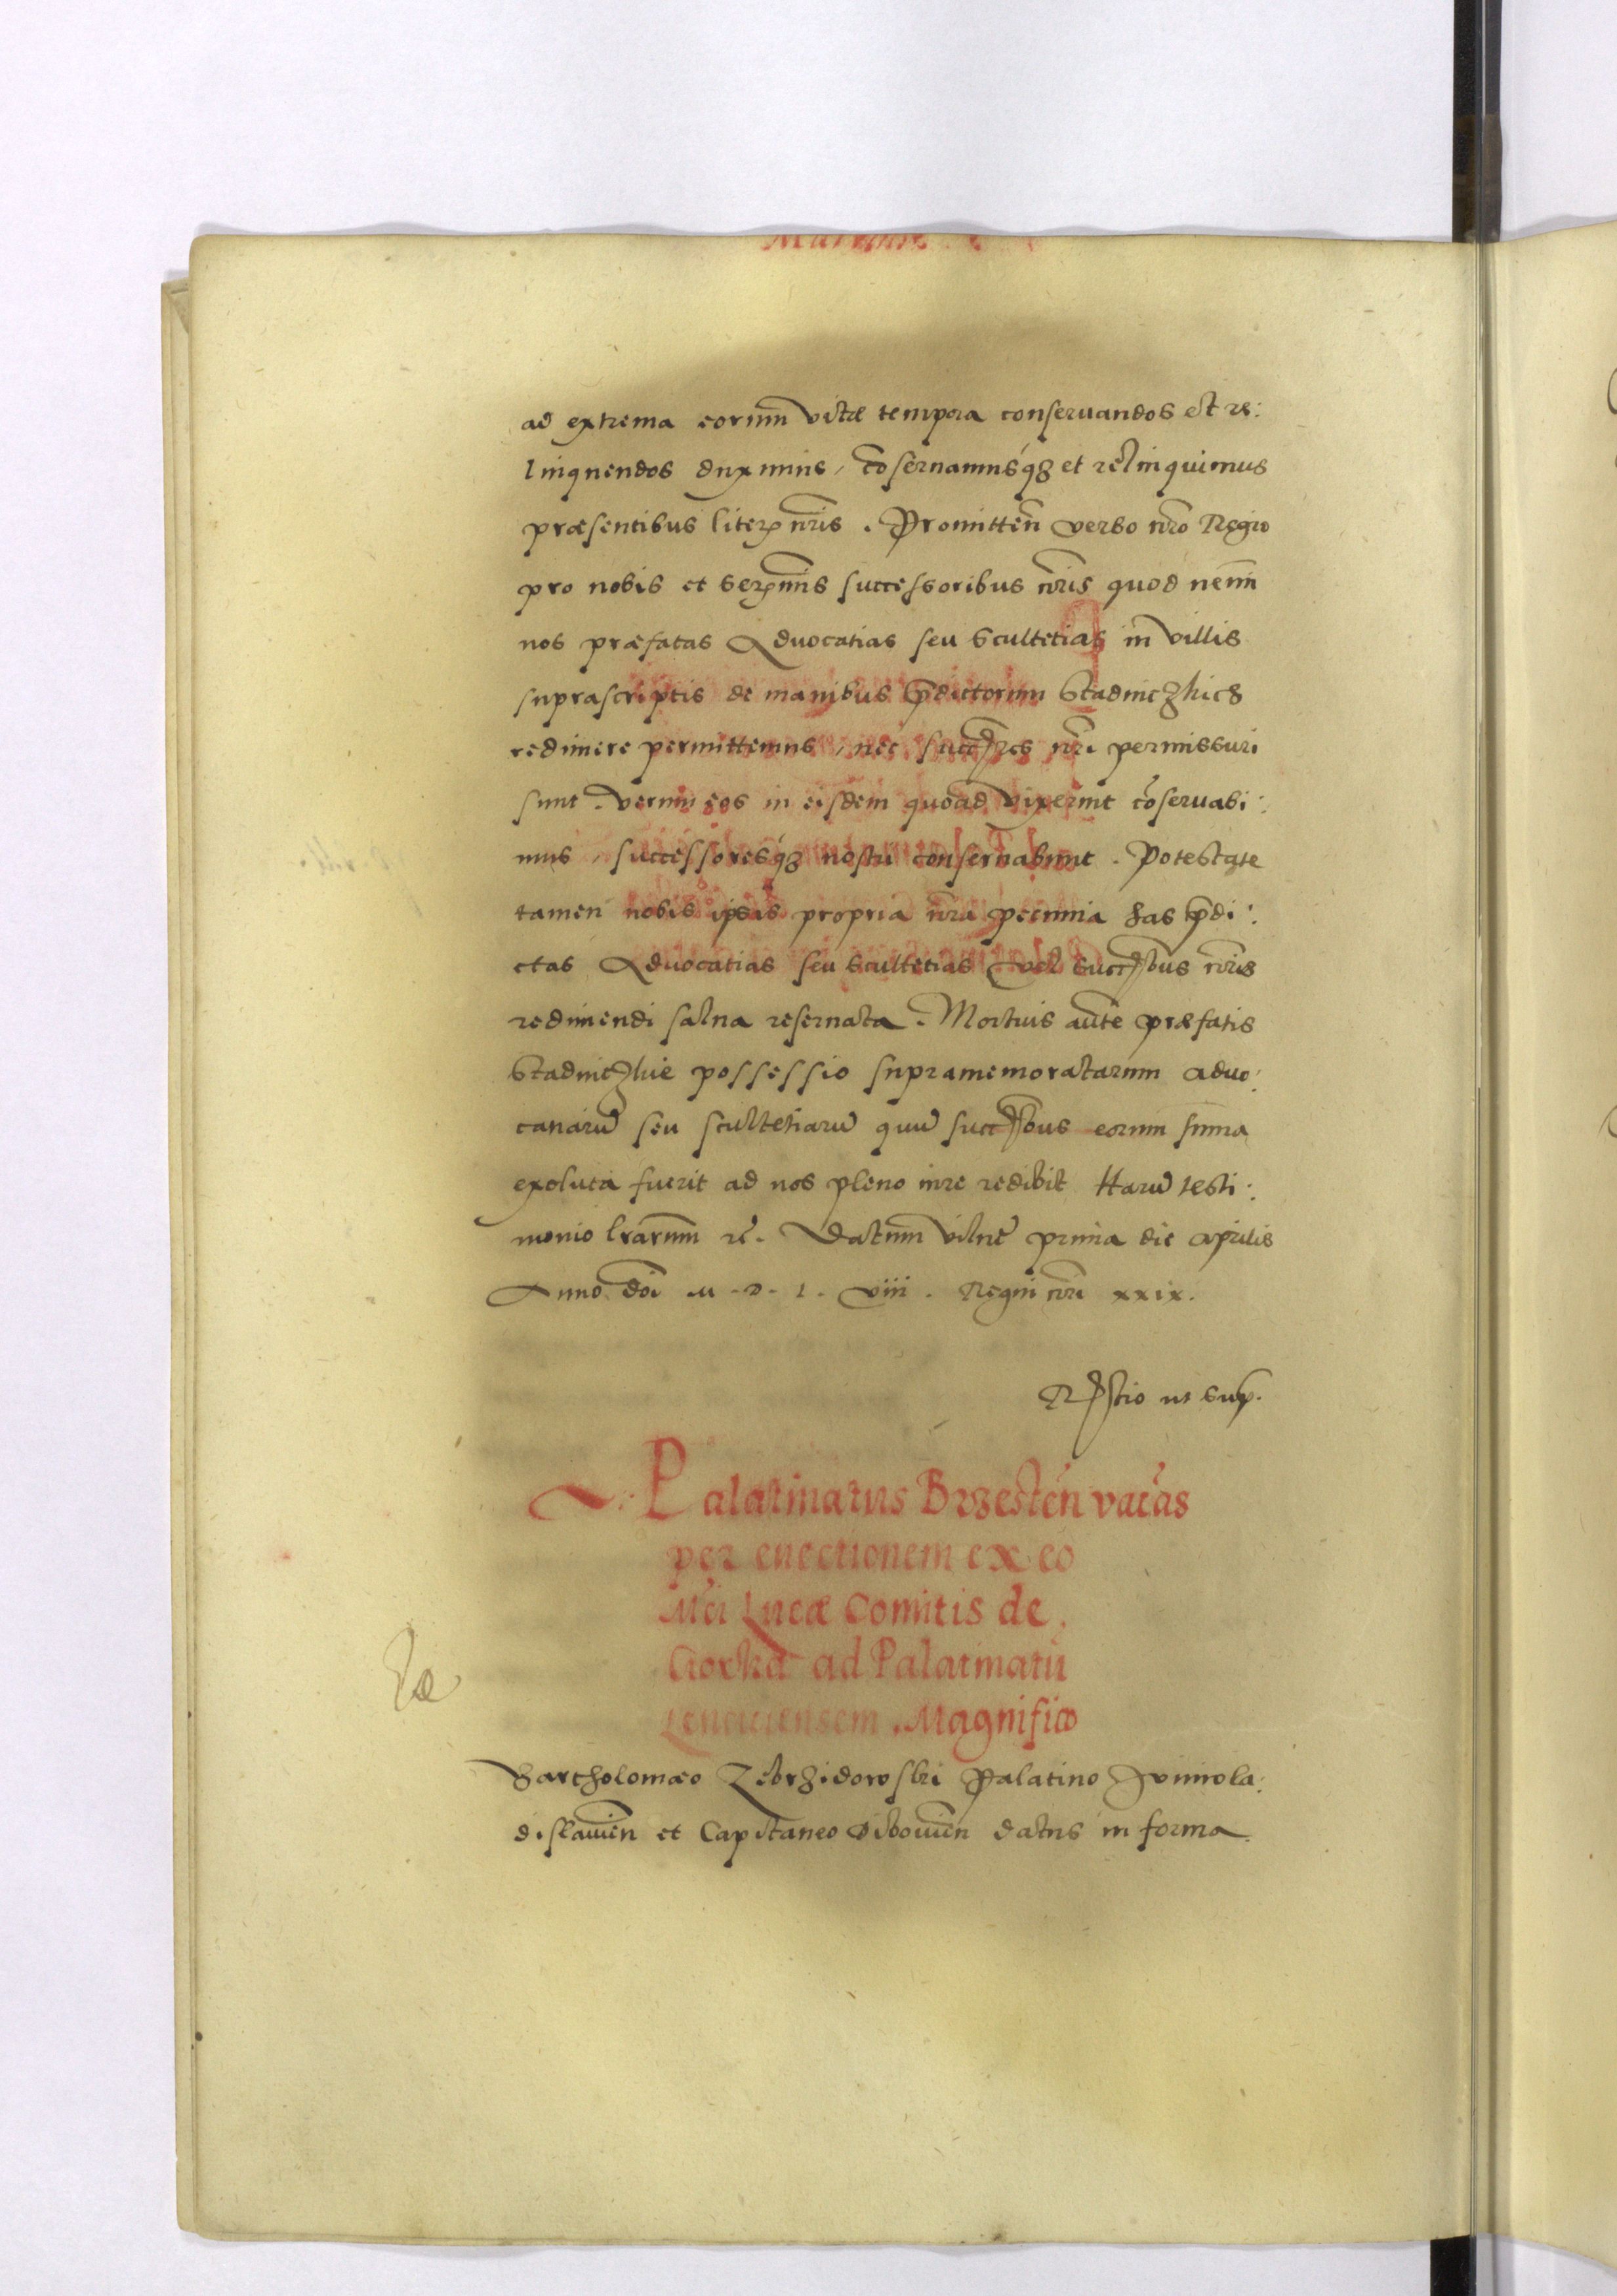 ad extrema eorum vitæ tempora conseruandos et re:
linquendos duximus, cōseruamusq́ꝫ et relinquimus
præsentibus literꝭ nr̄is. Promitteñ verbo nr̄o Regio
pro nobis et serꝫmis successoribus nr̄is quod nemini
nos præfatas Aduocatias seu Scultetias in villis
suprascriptis de manibus p̄dictorum Stadniczkich
redimere permittemus, nec succ̄res nr̄i permissuri
sunt. verum eos in eisdem quoad vixerint cōseruabi:
mus, successoresq́ꝫ nostri conseruabunt. Potestate
tamen nobis ipsis propria nr̄a pecunia has p̄di:
ctas Aduocatias seu Scultetias vel succ̄bus nr̄is
redimendi salua reseruata. Mortuis aūte præfatis
Stadniczkie possessio supramemoratarum aduo:
catiarū seu scultetiarū quū succ̄bus eorum sum̄a
exoluta fuerit ad nos pleno iure redibit Harū testi:
monio lr̄arum rē. Datum vilnę prima die aprilis
Anno dōi M. D. L. viii. Regni nr̄i xxix.
Rl̄atio ut sup.
Palatinatus Brzesteń vacās
per euectionem ex eo
M̄ci Lucæ Comitis de
Gorka ad Palatinatū
Lenciciensem. Magnifico
Bartholomæo Zebrzidowski Palatino Juniuola:
dislauień et Capitaneo Dibouień datus in forma.